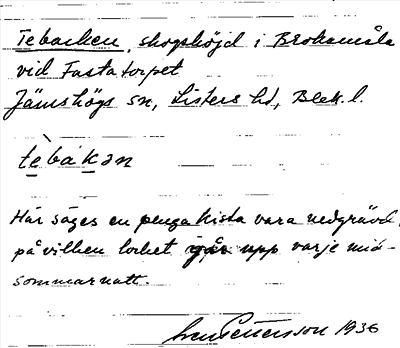 Tebacken, skogshöjd i Brokamåla
vid Fastatorpet
Jämshögs sn, Listers hd, Blek. l.
tèbákan
Här säges en pengakista vara nedgrävd,
på vilken locket går upp varje mid-
sommarnatt.
Sven Pettersson 1936